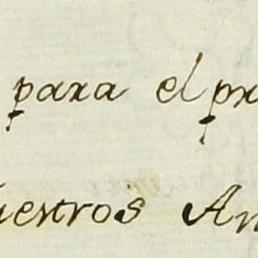 para el pr
uestros An